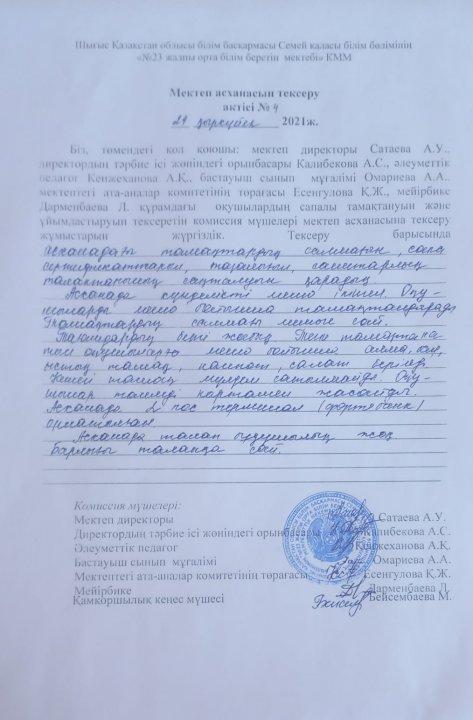 Шығыс Қазақстан облысы білім басқармасы Семей қаласы білім бөлімінің
«№23 жалпы орта білім беретін мектебі» КММ
Мектеп асханасын тексеру
актісі № 4
29 қыркүйек 2021ж.
Біз, төмендегі қол қоюшы: мектеп директоры Сатаева А.У.,
директордың тәрбие ісі жөніндегі орынбасары Калибекова А.С., әлеуметтік
педагог Кенжеханова А.Қ., бастауыш сынып мұғалімі Омариева А.А.,
мектептегі ата-аналар комитетінің торағасы Есенгулова Қ.Ж., мейірбике
Дарменбаева Л. құрамдағы оқушылардың сапалы тамақтануын және
ұйымдастыруын тексеретін комиссия мүшелері мектеп асханасына тексеру
жұмыстарын жүргіздік. Тексеру барысында
асханадағы тамақтардың салмағын, сапа
сертификаттарын, тазалығын, санитарлық
талаптарының сақталуын қарадық
Асханада күнделікті меню ілінген. Оқу-
шыларды меню бойынша тамақтандырады
Тамақтардың салмағы менюге сай.
Тағамдардың бәрі
оқушыларға меню бойынша
ыстық тамақ, компот, салат беріледі
Кешкі тамақ мүлдем сатылмайды. Оқу-
шылар төлемді картамен жасайды.
Асханада 2 пос терминал (фортебанк)
орнатылған
Асханада талап бұзушылық жоқ
Барлығы талапқа сай.
Комиссия мүшелері:
Мектеп директоры Сатаева А.У.
Директордың тәрбие ісі жөніндегі орынбасары Калибекова А.С.
Әлеуметтік педагог Кенжеханова А.Қ.
Бастауыш сынып мұғалімі Омариева А.А.
Мектептегі ата-аналар комитетінің торағасы Есенгулова Қ.Ж.
Мейірбике Дарменбаева Л.
Қамқоршылық кеңес мүшесі Бейсембаева М.